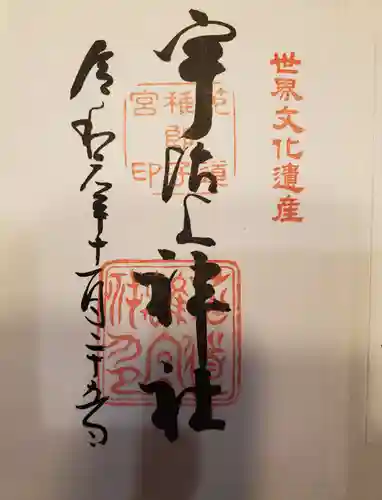 世界文化遺産
宇治上神社
令和元年十一月二十五日